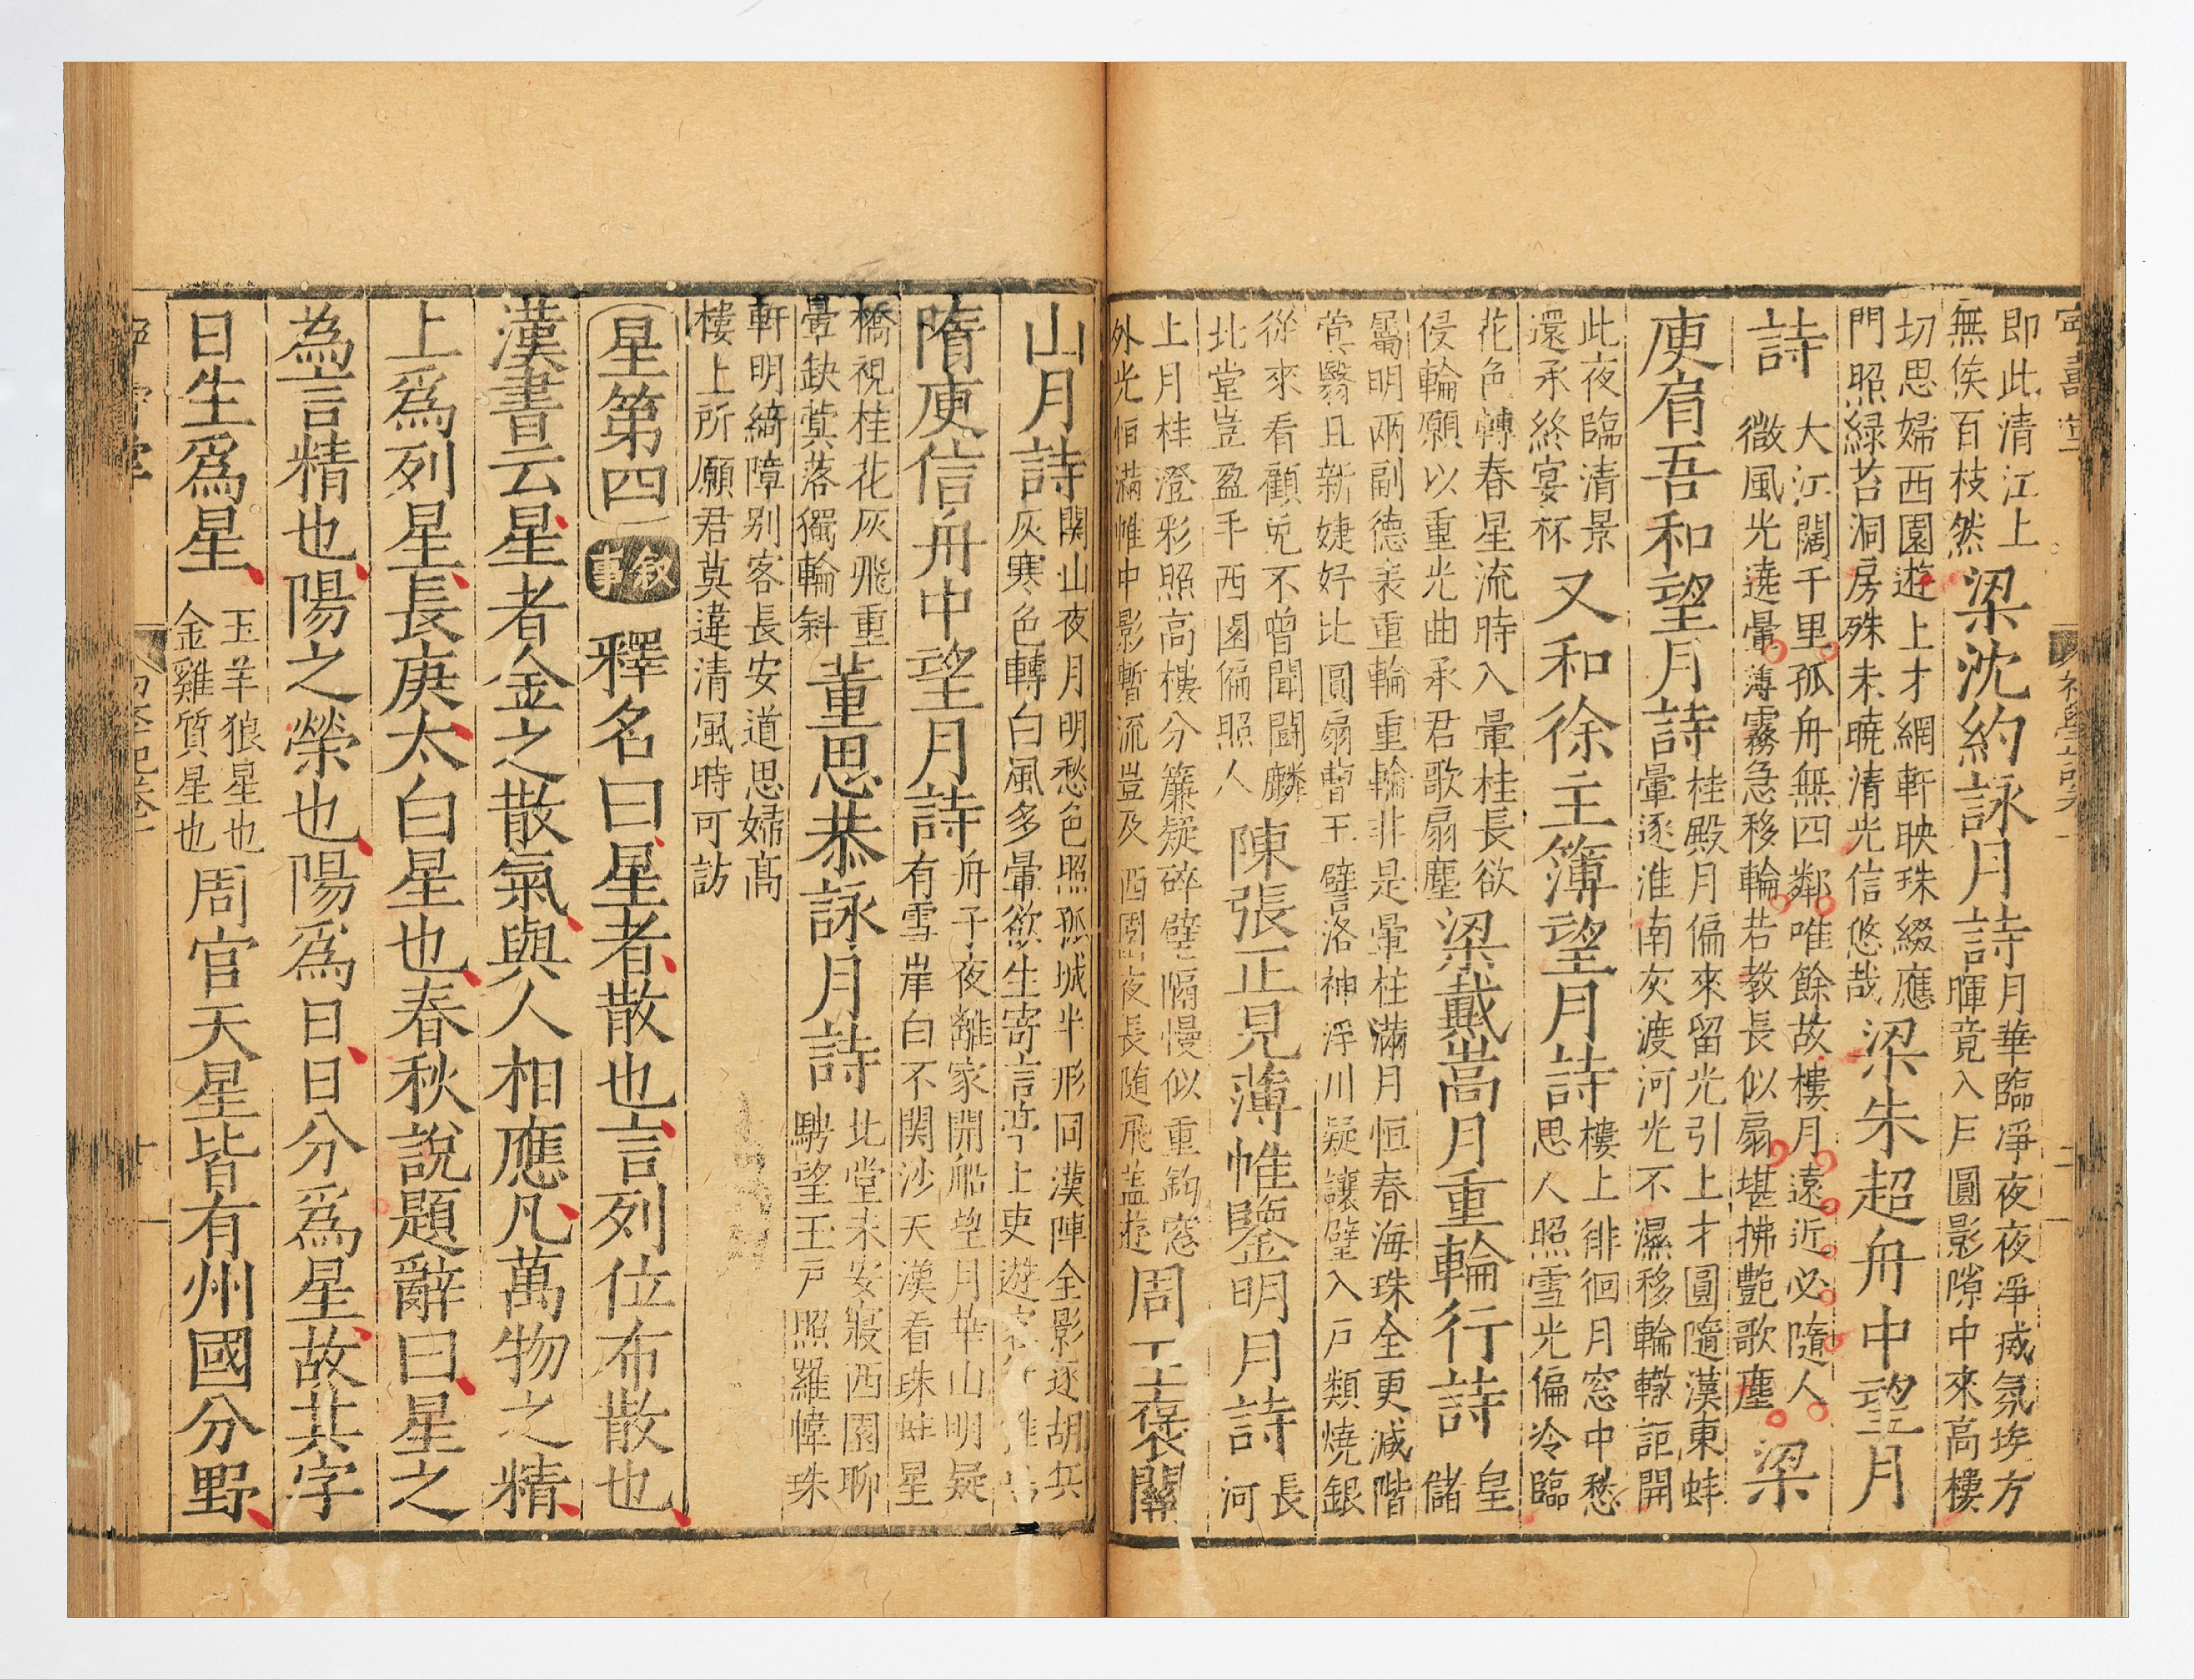 即此清江上
無俟百枝然
梁沈約詠月詩
月華臨凈夜夜凈滅氛埃方
暉竟入戶圓影隙中來高樓
切思婦西園遊上才網軒映珠綴應
門照緑苔洞房殊未曉清光信悠哉
梁朱超舟中望月
詩
大江闊千里孤舟無四鄰唯餘故樓月遠近必隨人
微風光遶暈薄霧急移輪若教長似扇堪拂艷歌塵
梁
庾肩吾和望月詩
桂殿月偏來留光引上才圓隨漢東蚌
暈逐淮南灰渡河光不濕移輪轍詎開
此夜臨清景
還承終宴杯
又和徐主簿望月詩
樓上徘徊月窓中愁
思人照雪光偏冷臨
花色轉春星流時入暈桂長欲
侵輪願以重光曲承君歌扇塵
梁戴嵩月重輪行詩
皇
儲
屬明兩副德表重輪重輪非是暈桂滿月恒春海珠全更減階
蓂翳且新婕妤比圓扇曹王譬洛神浮川疑讓璧入戶類燒銀
從來看顧兎不曾聞鬬麟
北堂豈盈手西園偏照人
陳張正見薄帷鑒明月詩
長
河
上月桂澄彩照高樓分簾疑碎璧隔幔似重鈎窓
外光恒滿帷中影暫流豈及西園夜長隨飛蓋遊
周王褒關
山月詩
關山夜月明愁色照孤城半形同漢陣全影逐胡兵
灰寒色轉白風多暈欲生寄言亭上吏遊客
隋庾信舟中望月詩
舟子夜離家開船望月華山明疑
有雪岸白不關沙天漢看珠蚌星
橋視桂花灰飛重
暈缺蓂落獨輪斜
董思恭詠月詩
北堂未安寢西園聊
騁望玉戶照羅幃珠
軒明綺障别客長安道思婦高
樓上所願君莫違清風時可訪
星第四
叙事
釋名曰星者散也言列位布散也
漢書云星者金之散氣與人相應凡萬物之精
上爲列星長庚太白星也春秋說題辭曰星之
為言精也陽之榮也陽爲日日分爲星故其字
日生爲星
玉羊狼星也
金雞質星也
周官天星皆有州國分野